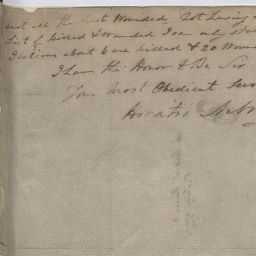 and all the rest Wounded. Not having a
List of killed & Wounded I can only sta
I believe about 6 are killed & 20 Woun
I have the Honor to Be Sir
Your most Obedient Serv
Horatio Nels